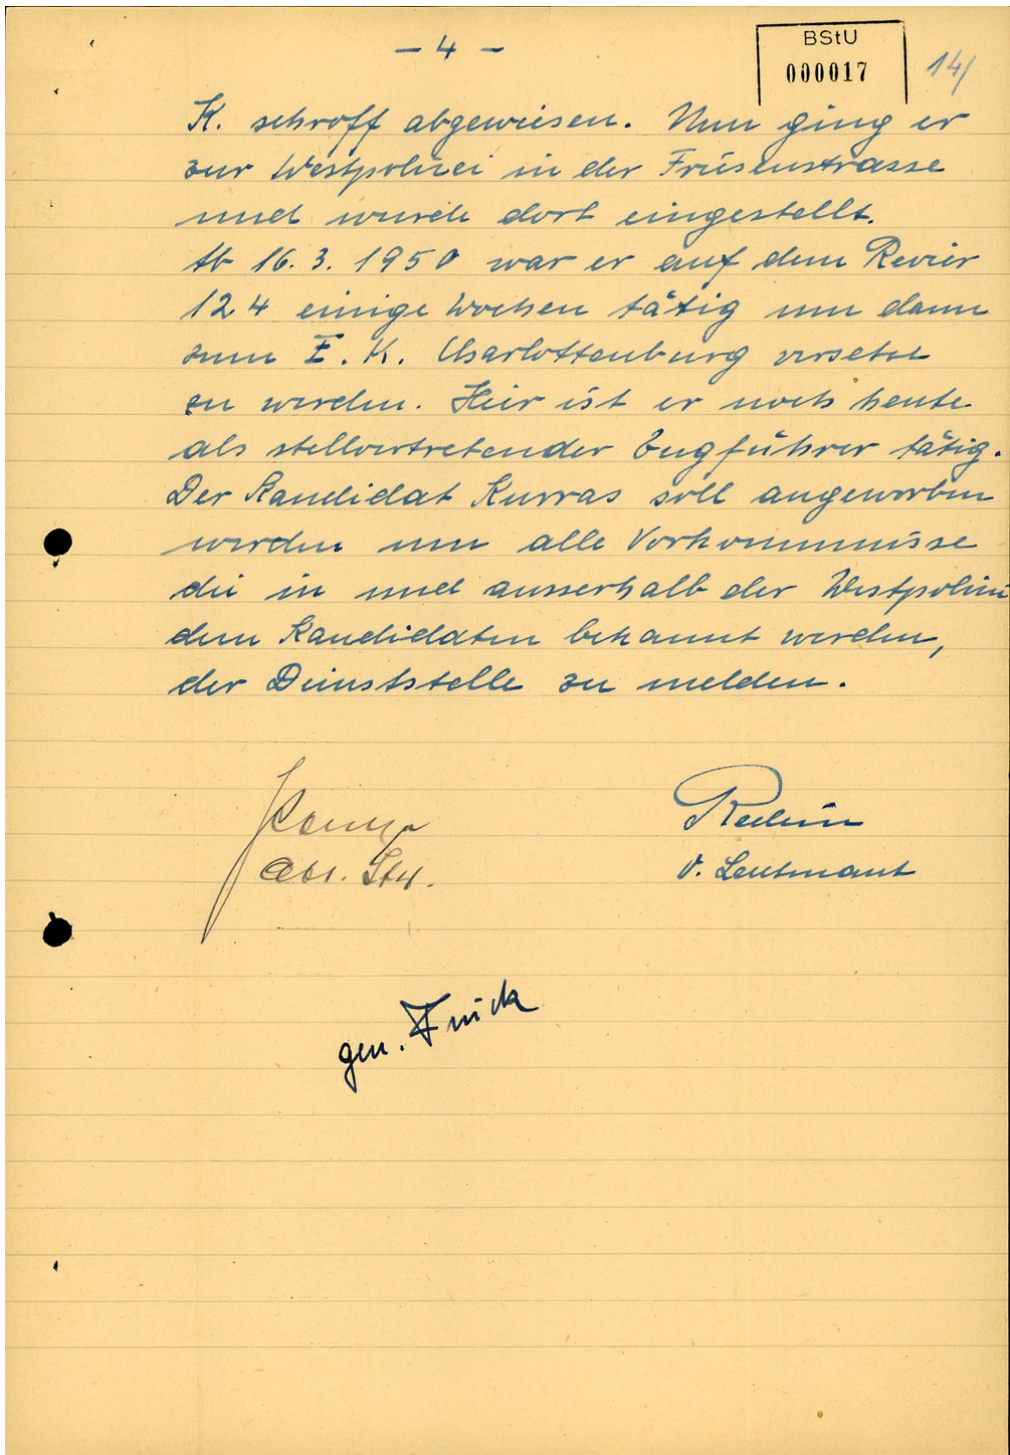 - 4 -
BStU
000017
14/
K. schroff abgewiesen. Nun ging er
zur Westpolizei in der Friesenstrasse
und wurde dort eingestellt.
Ab 16.3.1950 war er auf dem Revier
124 einige Wochen tätig um dann
zum E.K. Charlottenburg versetzt
zu werden. Hier ist er noch heute
als stellvertretender Zugführer tätig.
Der Kandidat Kurras soll angeworben
werden um alle Vorkommnisse
die in und ausserhalb der Westpolizei
dem Kandidaten bekannt werden,
der Dienststelle zu melden.
V. Leutnant
gen.